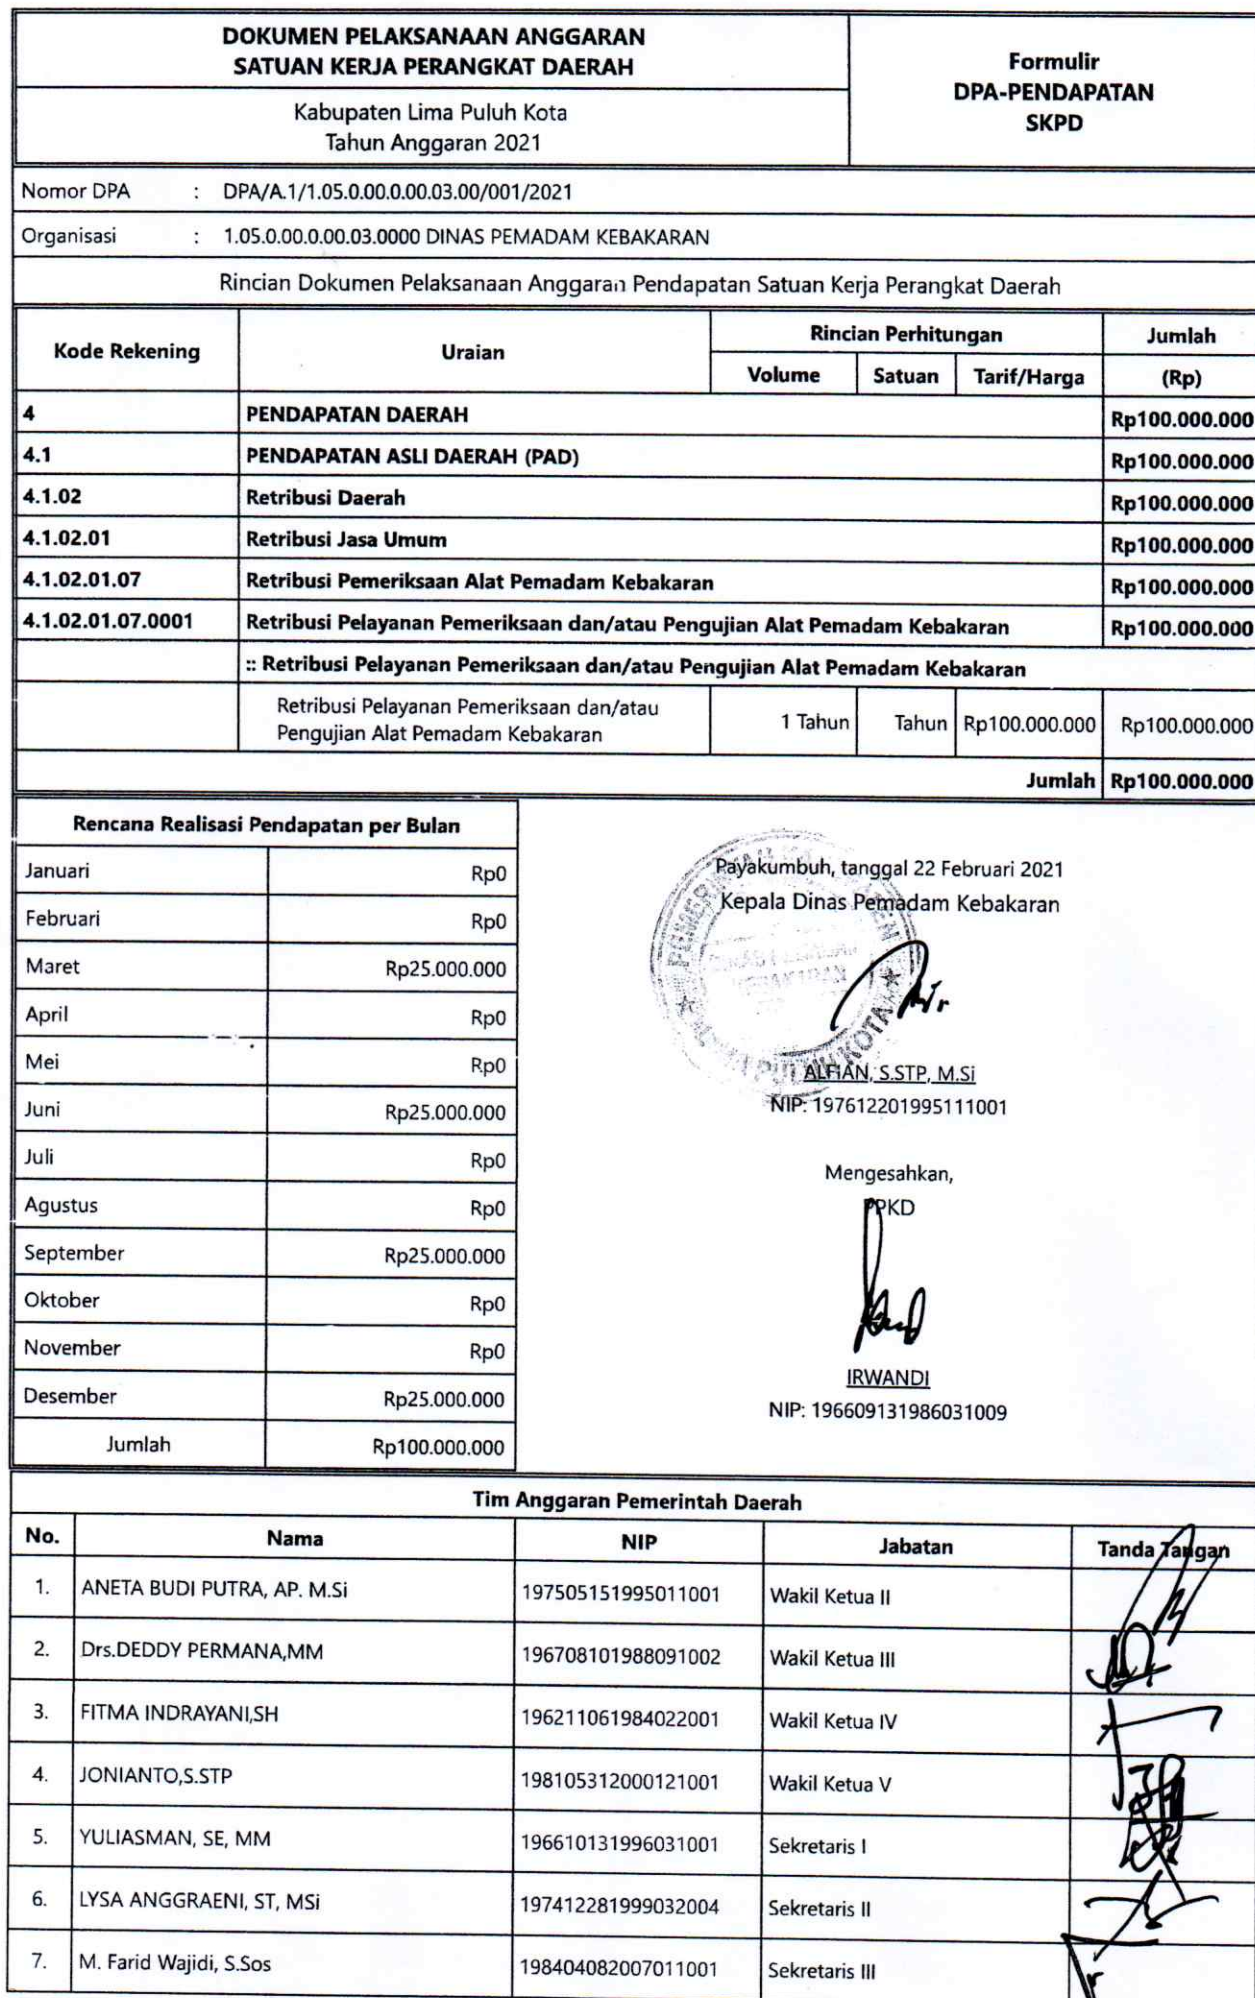 DOKUMEN PELAKSANAAN ANGGARAN
SATUAN KERJA PERANGKAT DAERAH
Formulir
DPA-PENDAPATAN
SKPD
Kabupaten Lima Puluh Kota
Tahun Anggaran 2021
Nomor DPA : DPA/A.1/1.05.0.00.0.00.03.00/001/2021
Organisasi : 1.05.0.00.0.00.03.0000 DINAS PEMADAM KEBAKARAN
Rincian Dokumen Pelaksanaan Anggaran Pendapatan Satuan Kerja Perangkat Daerah
Kode Rekening Uraian Rincian Perhitungan Jumlah
Volume Satuan Tarif/Harga (Rp)
4 PENDAPATAN DAERAH Rp100.000.000
4.1 PENDAPATAN ASLI DAERAH (PAD) Rp100.000.000
4.1.02 Retribusi Daerah Rp100.000.000
4.1.02.01 Retribusi Jasa Umum Rp100.000.000
4.1.02.01.07 Retribusi Pemeriksaan Alat Pemadam Kebakaran Rp100.000.000
4.1.02.01.07.0001 Retribusi Pelayanan Pemeriksaan dan/atau Pengujian Alat Pemadam Kebakaran Rp100.000.000
:: Retribusi Pelayanan Pemeriksaan dan/atau Pengujian Alat Pemadam Kebakaran
Retribusi Pelayanan Pemeriksaan dan/atau
Pengujian Alat Pemadam Kebakaran 1 Tahun Tahun Rp100.000.000 Rp100.000.000
Jumlah Rp100.000.000
Rencana Realisasi Pendapatan per Bulan
Januari Rp0
Februari Rp0
Maret Rp25.000.000
April Rp0
Mei Rp0
Juni Rp25.000.000
Juli Rp0
Agustus Rp0
September Rp25.000.000
Oktober Rp0
November Rp0
Desember Rp25.000.000
Jumlah Rp100.000.000
Payakumbuh, tanggal 22 Februari 2021
Kepala Dinas Pemadam Kebakaran
ALFIAN, S.STP, M.Si
NIP: 197612201995111001
Mengesahkan,
PPKD
IRWANDI
NIP: 196609131986031009
Tim Anggaran Pemerintah Daerah
No. Nama NIP Jabatan Tanda Tangan
1. ANETA BUDI PUTRA, AP. M.Si 197505151995011001 Wakil Ketua II
2. Drs.DEDDY PERMANA,MM 196708101988091002 Wakil Ketua III
3. FITMA INDRAYANI,SH 196211061984022001 Wakil Ketua IV
4. JONIANTO,S.STP 198105312000121001 Wakil Ketua V
5. YULIASMAN, SE, MM 196610131996031001 Sekretaris I
6. LYSA ANGGRAENI, ST, MSi 197412281999032004 Sekretaris II
7. M. Farid Wajidi, S.Sos 198404082007011001 Sekretaris III